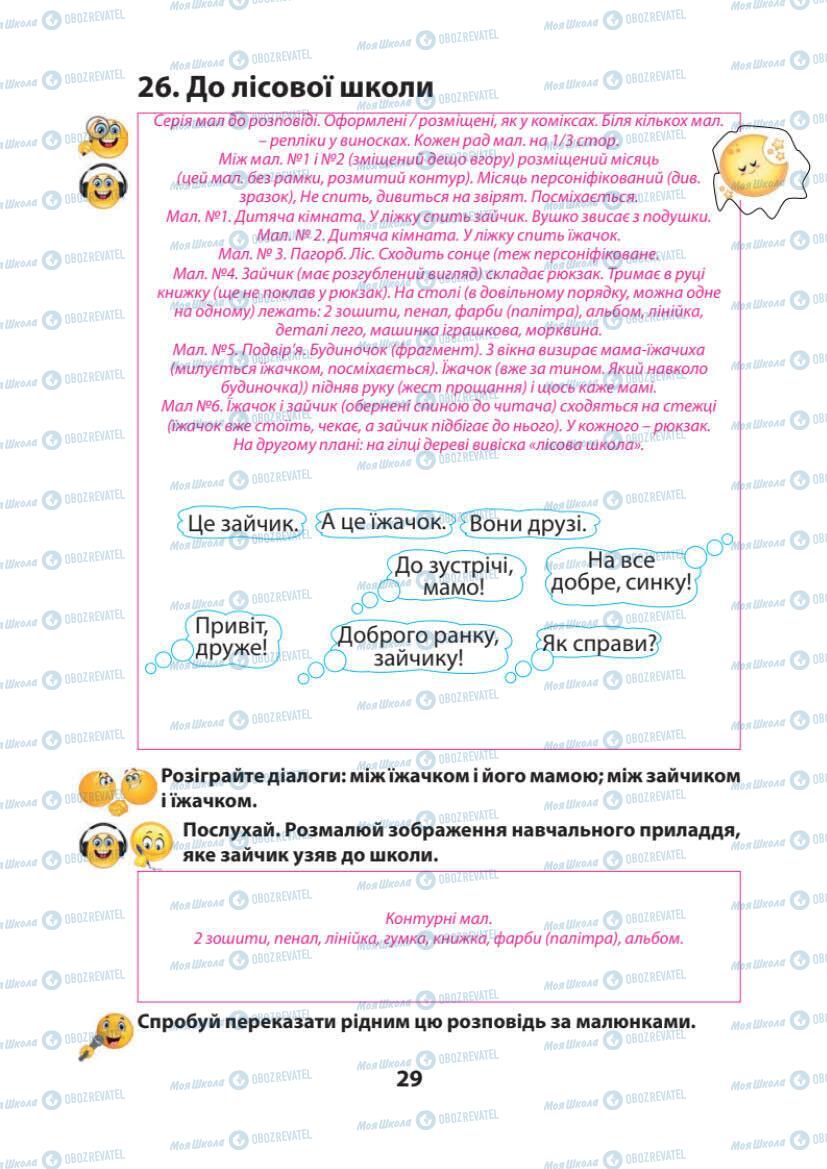 26. До лісової школи
Серія мал до розповіді. Оформлені / розміщені, як у коміксах. Біля кількох мал.
– репліки у виносках. Кожен рад мал. на 1/3 стор.
Між мал. №1 і №2 (зміщений дещо вгору) розміщений місяць
(цей мал. без рамки, розмитий контур). Місяць персоніфікований (див.
зразок), Не спить, дивиться на звірят. Посміхається.
Мал. №1. Дитяча кімната. У ліжку спить зайчик. Вушко звисає з подушки.
Мал. № 2. Дитяча кімната. У ліжку спить їжачок.
Мал. № 3. Пагорб. Ліс. Сходить сонце (теж персоніфіковане.
Мал. №4. Зайчик (має розгублений вигляд) складає рюкзак. Тримає в руці
книжку (ще не поклав у рюкзак). На столі (в довільному порядку, можна одне
на одному) лежать: 2 зошити, пенал, фарби (палітра), альбом, лінійка,
деталі лего, машинка іграшкова, морквина.
Мал. №5. Подвір’я. Будиночок (фрагмент). З вікна визирає мама-їжачиха
(милується їжачком, посміхається). Їжачок (вже за тином. Який навколо
будиночка)) підняв руку (жест прощання) і щось каже мамі.
Мал №6. Їжачок і зайчик (обернені спиною до читача) сходяться на стежці
(їжачок вже стоїть, чекає, а зайчик підбігає до нього). У кожного – рюкзак.
На другому плані: на гілці дереві вивіска «лісова школа».
Це зайчик. А це їжачок. Вони друзі.
До зустрічі,
мамо!
На все
добре, синку!
Привіт,
друже!
Доброго ранку,
зайчику!
Як справи?
Розіграйте діалоги: між їжачком і його мамою; між зайчиком
і їжачком.
Послухай. Розмалюй зображення навчального приладдя,
яке зайчик узяв до школи.
Контурні мал.
2 зошити, пенал, лінійка, гумка, книжка, фарби (палітра), альбом.
Спробуй переказати рідним цю розповідь за малюнками.
29